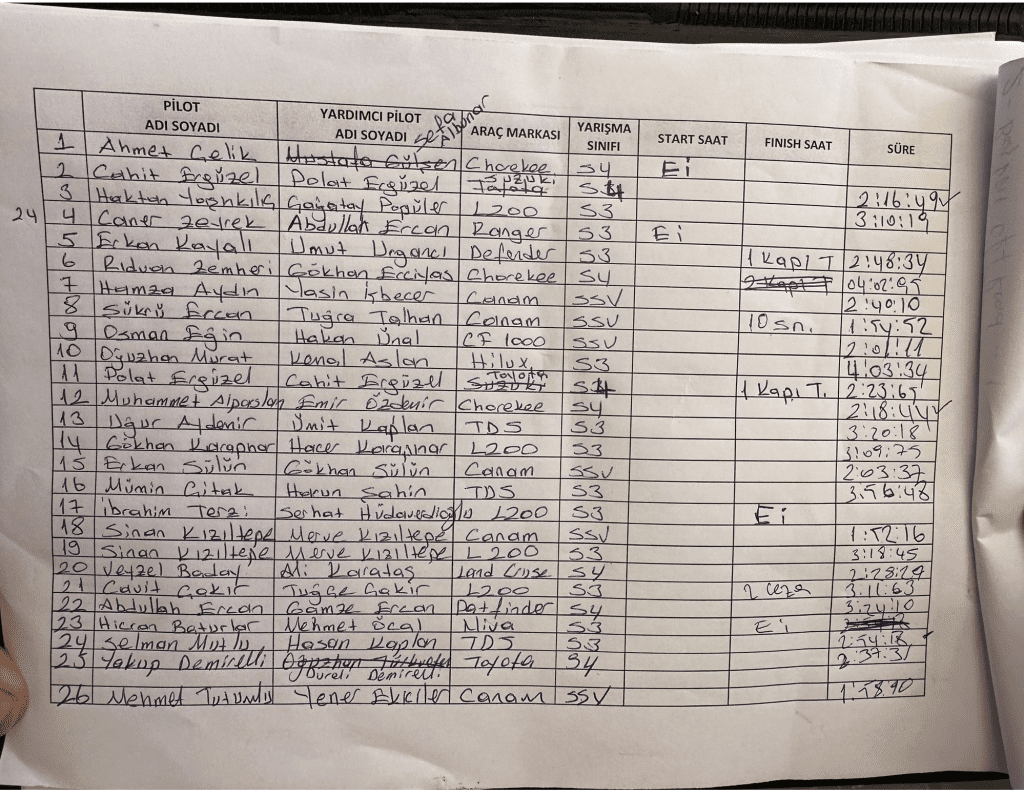 PİLOT ADI SOYADI YARDIMCI PİLOT ADI SOYADI ARAÇ MARKASI YARIŞMA SINIFI START SAAT FINISH SAAT SÜRE
1 Ahmet Çelik Mustafa Gülşen Sefa Chorekee S4 Ei
2 Cahit Ergüzel Polat Ergüzel Suzuki Tayota S4 2:16:49
3 Haktan Çağatay Popüler L200 S3 3:10:19
24 4 Caner Zeyrek Abdullah Ercan Ranger S3 Ei
5 Erkan Kayalı Umut Urgancı Defender S3 1 Kapı T 2:48:34
6 Rıdvan Zemheri Gökhan Erciyas Chorekee S4 2 Kapı T 04:02:05
7 Hamza Aydın Yasin İşbecer Canam SSV 2:40:10
8 Şükrü Ercan Tuğra Talhan Canam SSV 10 sn. 1:54:52
9 Osman Eğin Hakan Ünal CF 1000 SSV 2:01:11
10 Oğuzhan Murat Kenal Aslan Hilux S3 4:03:34
11 Polat Ergüzel Cahit Ergüzel Tayota Suzuki S4 1 Kapı T. 2:23:65
12 Muhammet Alparslan Emir Özdemir Chorekee S4 2:18:44
13 Uğur Aydemir Ümit Kaplan TDS S3 3:20:18
14 Gökhan Karapınar Hacer Karapınar L200 S3 3:09:75
15 Erkan Sülün Gökhan Sülün Canam SSV 2:03:37
16 Mümin Çıtak Harun Şahin TDS S3 3:56:48
17 İbrahim Terzi Serhat Hüdaverdioğlu L200 S3 Ei
18 Sinan Kızıltepe Merve Kızıltepe Canam SSV 1:52:16
19 Sinan Kızıltepe Merve Kızıltepe L200 S3 3:18:45
20 Veyzel Baday Ali Karataş Land Cruse S4 2:28:29
21 Cavit Çakır Tuğçe Çakir L200 S3 2 ceza 3:11:63
22 Abdullah Ercan Gamze Ercan Patfinder S4 3:24:10
23 Hicran Baturlar Mehmet Öcal Niva S3 Ei
24 Selman Mutlu Hasan Kaplan TDS S3 2:54:18
25 Yakup Demirelli Oğuzhan Demirelli Tayota S4 2:37:31
26 Mehmet Tutumlu Yener Ekiciler Canam SSV 1:58:90